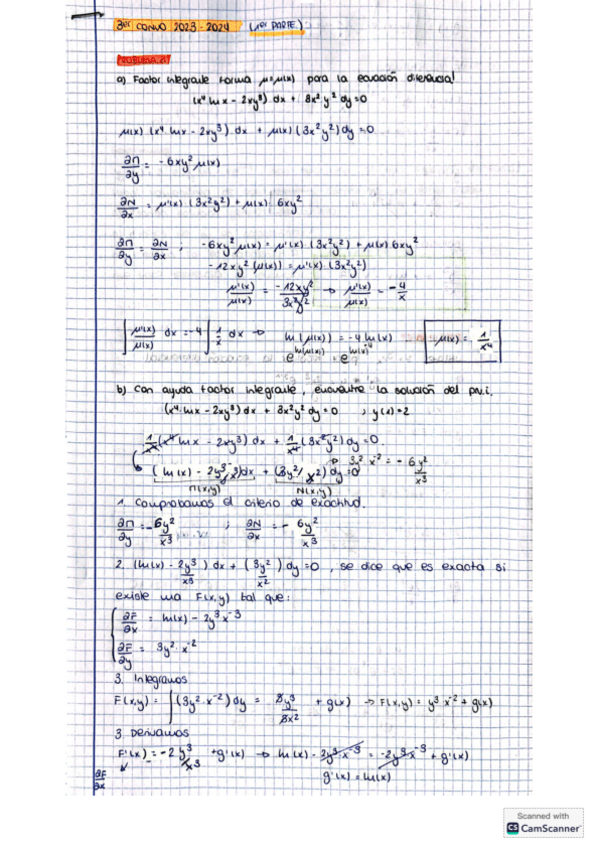 3er CONVO 2023-2024 (1er PARTE.)
PROBLEMA 1
a) Factor integrante forma μ=μ(x) para la ecuación diferencial
(x⁴ lnx - 2xy³) dx + 3x² y² dy=0
μ(x) (x⁴ lnx - 2xy³) dx + μ(x) (3x²y²) dy=0
∂M/∂y = -6xy² μ(x)
∂N/∂x = μ'(x) (3x²y²) + μ(x) 6xy²
∂M/∂y = ∂N/∂x ; -6xy² μ(x) = μ'(x) (3x²y²) + μ(x) 6xy²
-12xy² (μ(x)) = μ'(x) (3x²y²)
μ'(x)/μ(x) = -12xy²/3x²y² → μ'(x)/μ(x) = -4/x
∫ μ'(x)/μ(x) dx = -4 ∫ 1/x dx → ln(μ(x)) = -4 ln(x) μ(x) = 1/x⁴
e^ln(μ(x)) = e^ln(x)^-4
b) Con ayuda Factor integrante, encuentre la solución del p.v.i.
(x⁴ lnx - 2xy³) dx + 3x²y² dy=0 ; y(1)=2
1/x⁴ (x⁴ lnx - 2xy³) dx + 1/x⁴ (3x²y²) dy=0.
(ln(x) - 2y³x⁻³) dx + (3y²/x²) dy=0 → 3y² x⁻² = - 6y²/x³
M(x,y) N(x,y)
1. Comprobamos el criterio de exactitud.
∂M/∂y = -6y²/x³ ; ∂N/∂x = - 6y²/x³
2. (ln(x) - 2y³/x³) dx + (3y²/x²) dy=0, se dice que es exacta si
existe una F(x,y) tal que:
∂F/∂x = ln(x) - 2y³x⁻³
∂F/∂y = 3y² · x⁻²
3. Integramos
F(x,y) = ∫(3y² · x⁻²) dy = 3y³/3x² + g(x) → F(x,y) = y³·x⁻² + g(x)
3. Derivamos
F'(x) = -2y³/x³ + g'(x) → ln(x) - 2y³x⁻³ = -2y³x⁻³ + g'(x)
∂F/∂x g'(x) = ln(x)
Scanned with
CS CamScanner